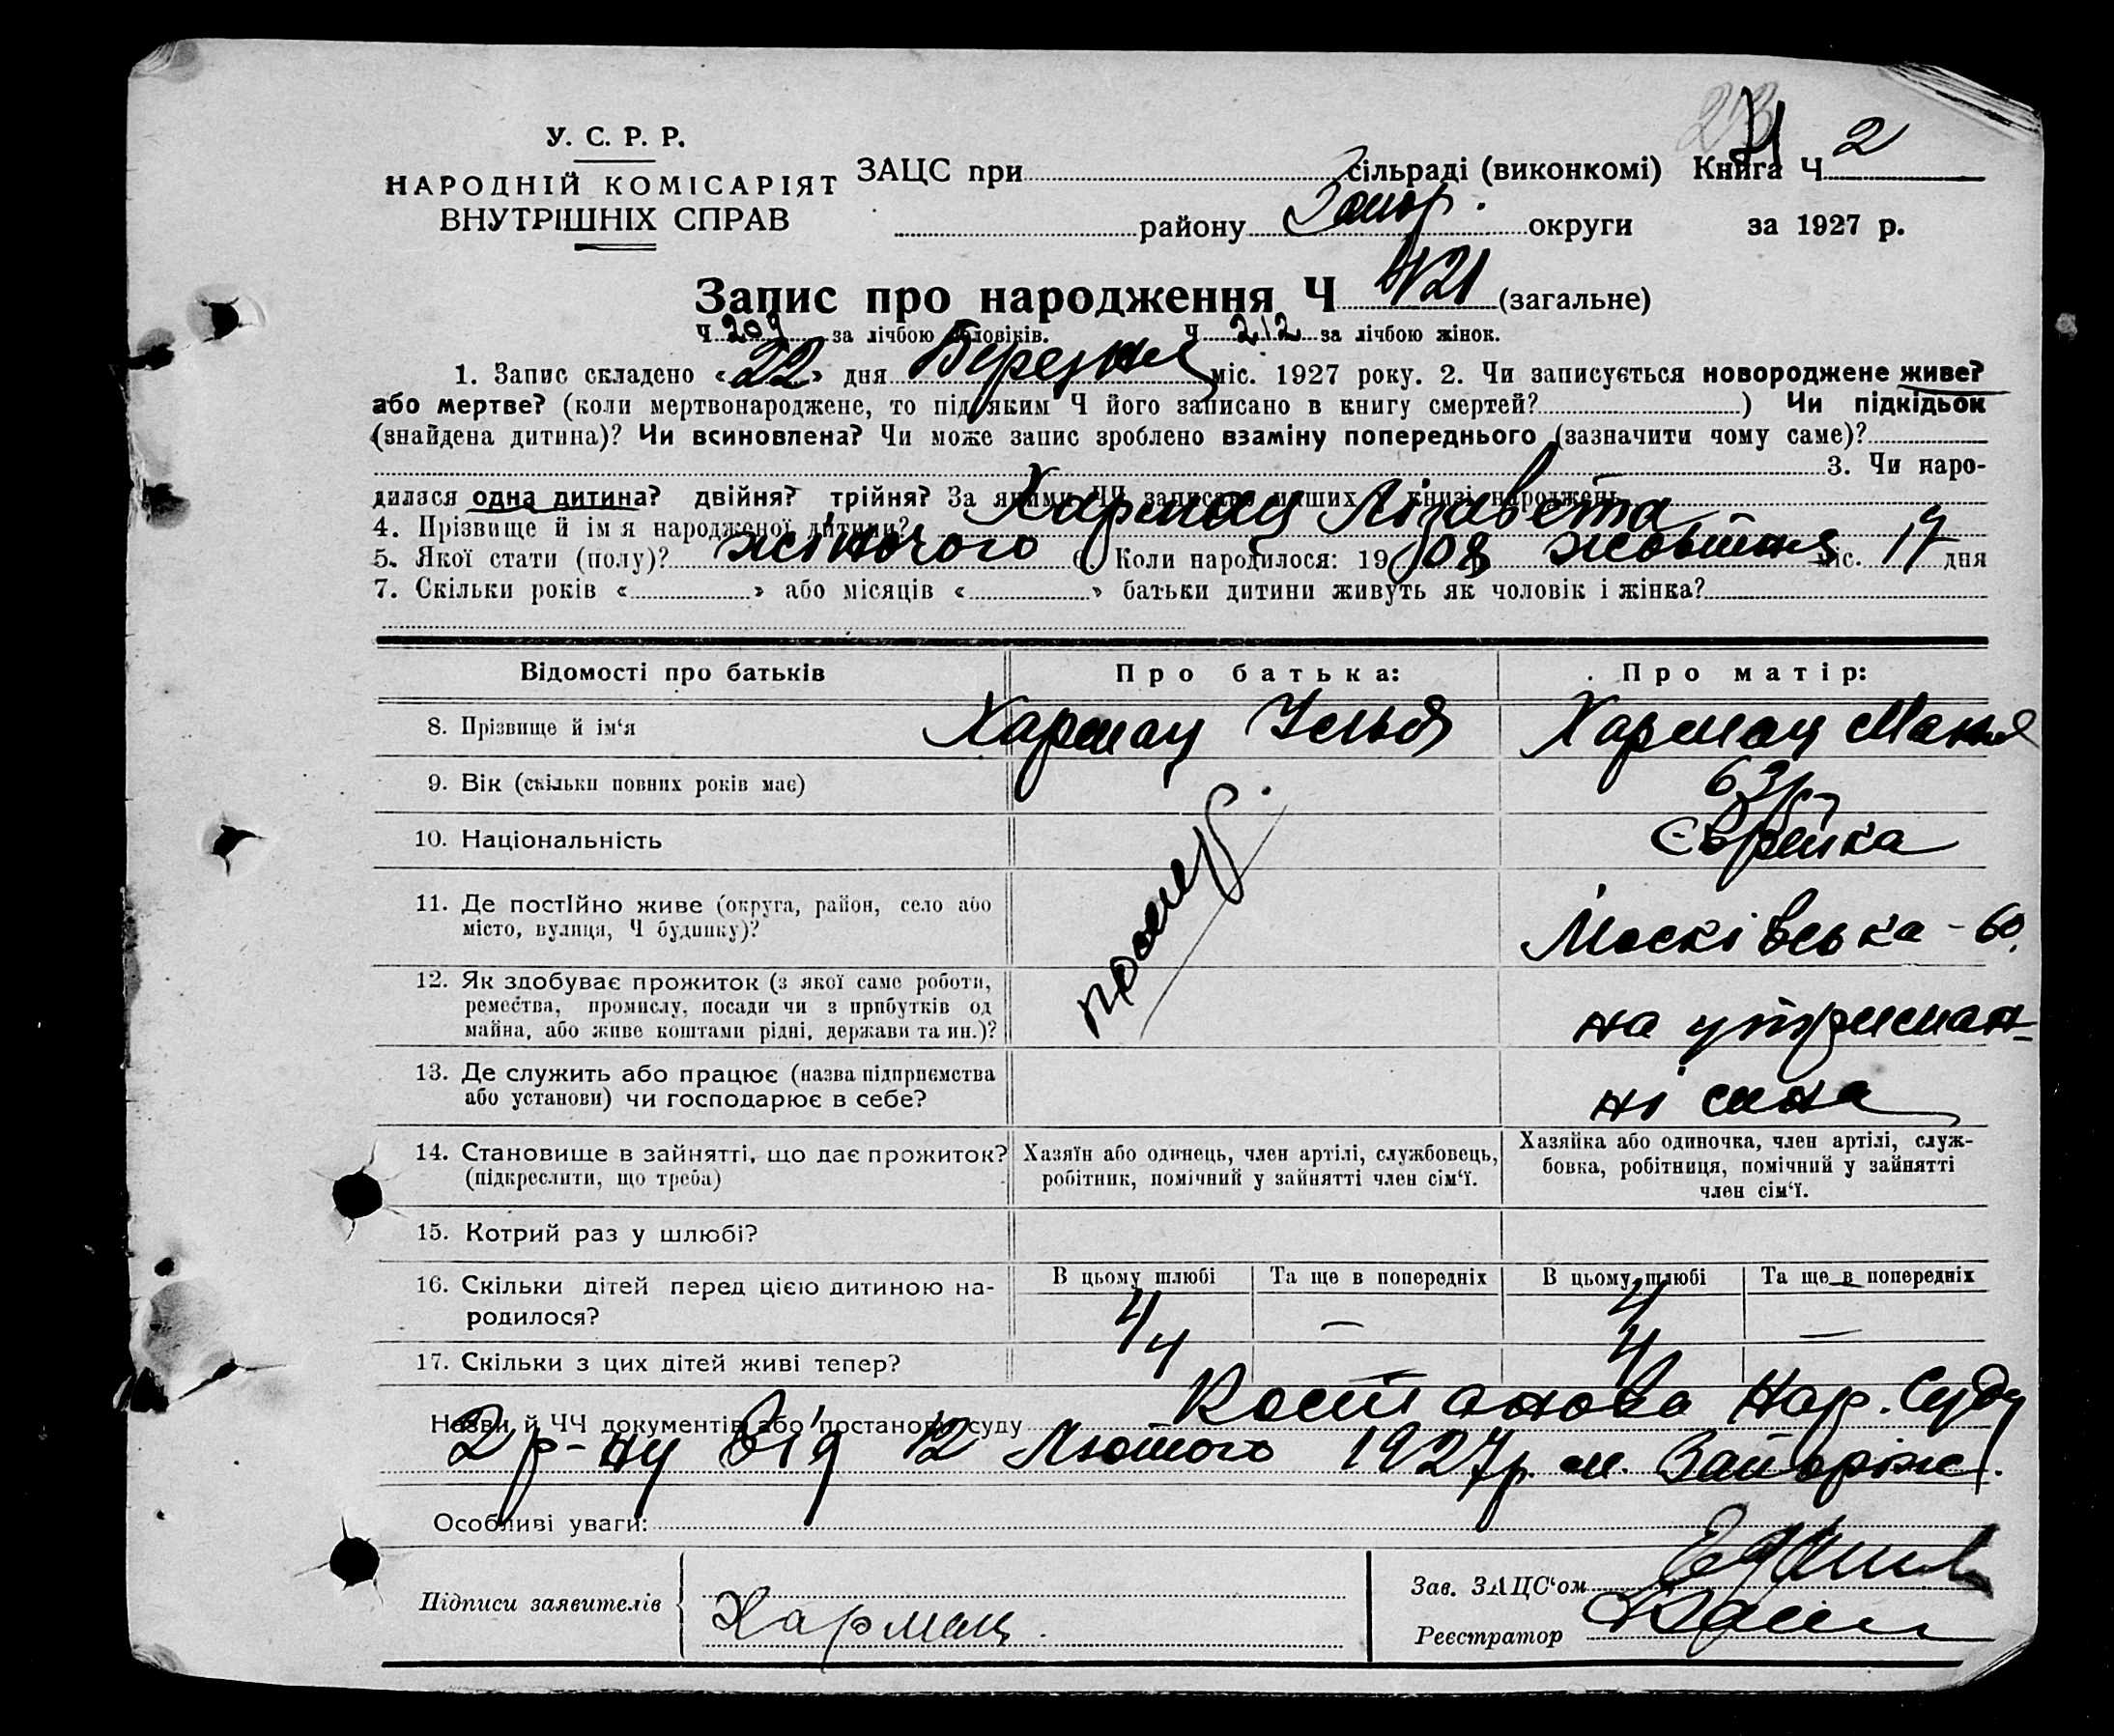 23
У. С. Р. Р.
НАРОДНІЙ КОМІСАРІЯТ
ВНУТРІШНІХ СПРАВ
ЗАЦС при сільраді (виконкомі) Книга Ч 2
району Запор. округи за 1927 р.
Запис про народження Ч 421 (загальне)
Ч 209 за лічбою чоловіків. Ч 212 за лічбою жінок.
1. Запис складено «22» дня Березня міс. 1927 року. 2. Чи записується новороджене живе?
або мертве? (коли мертвонароджене, то під яким Ч його записано в книгу смертей? ) Чи підкідьок
(знайдена дитина)? Чи всиновлена? Чи може запис зроблено взаміну попереднього (зазначити чому саме)?
3. Чи наро-
дилася одна дитина? двійня? трійня? За якими ЧЧ записано инших у книзі народжень
4. Прізвище й ім'я народженої дитини? Хармац Лізавета
5. Якої стати (полу)? жіночого 6. Коли народилося: 1908 жовтня міс. 17 дня
7. Скільки років « » або місяців « » батьки дитини живуть як чоловік і жінка?
Відомості про батьків Про батька: Про матір:
8. Прізвище й ім‘я Хармац Ілья Хармац Маня
9. Вік (скільки повних років має) 63 р.
10. Національність Єврейка
11. Де постІйно живе (округа, район, село або
місто, вулиця, Ч будинку)? Московська - 60.
помер.
12. Як здобуває прожиток (з якої саме роботи,
ремества, промислу, посади чи з прибутків од
майна, або живе коштами рідні, держави та ин.)? на утриман-
13. Де служить або працює (назва підприємства
або установи) чи господарює в себе? ні сина
14. Становище в зайнятті, що дає прожиток? Хазяїн або одинець, член артілі, службовець, Хазяйка або одиночка, член артілі, служ-
(підкреслити, що треба) робітник, помічний у зайнятті член сім‘ї. бовка, робітниця, помічний у зайнятті
член сім‘ї.
15. Котрий раз у шлюбі?
16. Скільки дітей перед цією дитиною на- В цьому шлюбі Та ще в попередніх В цьому шлюбі Та ще в попередніх
родилося? 4 — 4 —
17. Скільки з цих дітей живі тепер? 4 — 4
Назви й ЧЧ документів або постанови суду Костанова Нар. Суду
2 р-ну від 12 Лютого 1927 р. м. Запоріж.
Особливі уваги:
Підписи заявителів Хармац Зав. ЗАЦС‘ом
Реєстратор